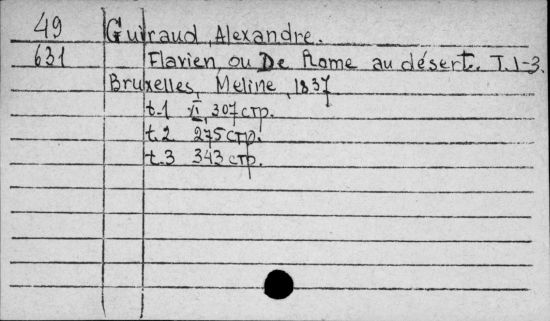 49 Guiraud, Alexandre.
631 Flavien, ou De Rome au désert. T. 1-3.
Bruxelles, Meline, 1837
t.1 VI, 307 стр.
t.2 275 стр.
t.3 343 стр.